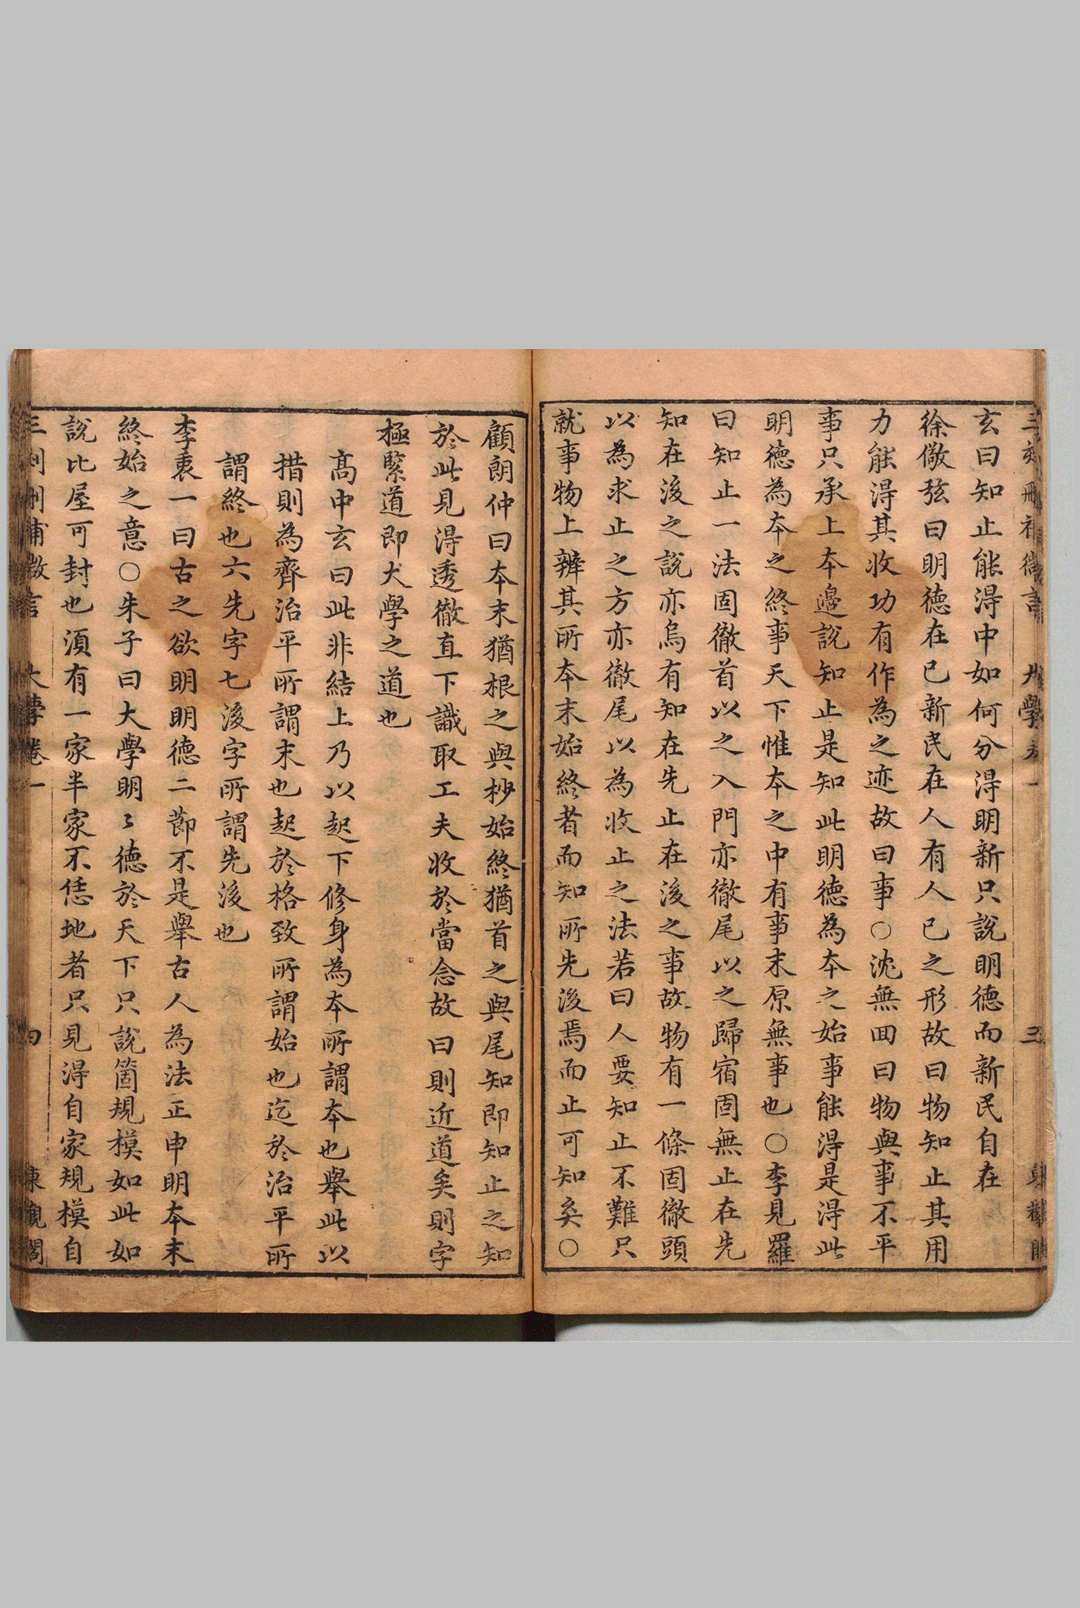 大學卷一
三
玄曰知止能淂中如何分淂明新只說明德而新民自在
徐儆弦曰明德在已新民在人有人已之形故曰物知止其用
力能淂其收功有作為之迹故曰事○沈無回曰物與事不平
事只承上本邊說知止是知此明德為本之始事能淂是淂此
明德為本之終事天下惟本之中有事末原無事也○李見羅
曰知止一法固徹首以之入門亦徹尾以之歸宿固無止在先
知在後之說亦烏有知在先止在後之事故物有一條固徹頭
以為求止之方亦徹尾以為收止之法若曰人要知止不難只
就事物上辨其所本末始終者而知所先後焉而止可知矣○
顧朗仲曰本末猶根之與杪始終猶首之與尾知即知止之知
於此見淂透徹直下識取工夫收於當念故曰則近道矣則字
極緊道即大學之道也
高中玄曰此非結上乃以起下修身為本所謂本也舉此以
措則為齊治平所謂末也起於格致所謂始也迄於治平所
謂終也六先字七後字所謂先後也
李衷一曰古之欲明明德二節不是舉古人為法正申明本末
終始之意○朱子曰大學明〻德於天下只說箇規模如此如
說比屋可封也須有一家半家不恁地者只見淂自家規模自
刪補微言
大學卷一
四
東觀閣